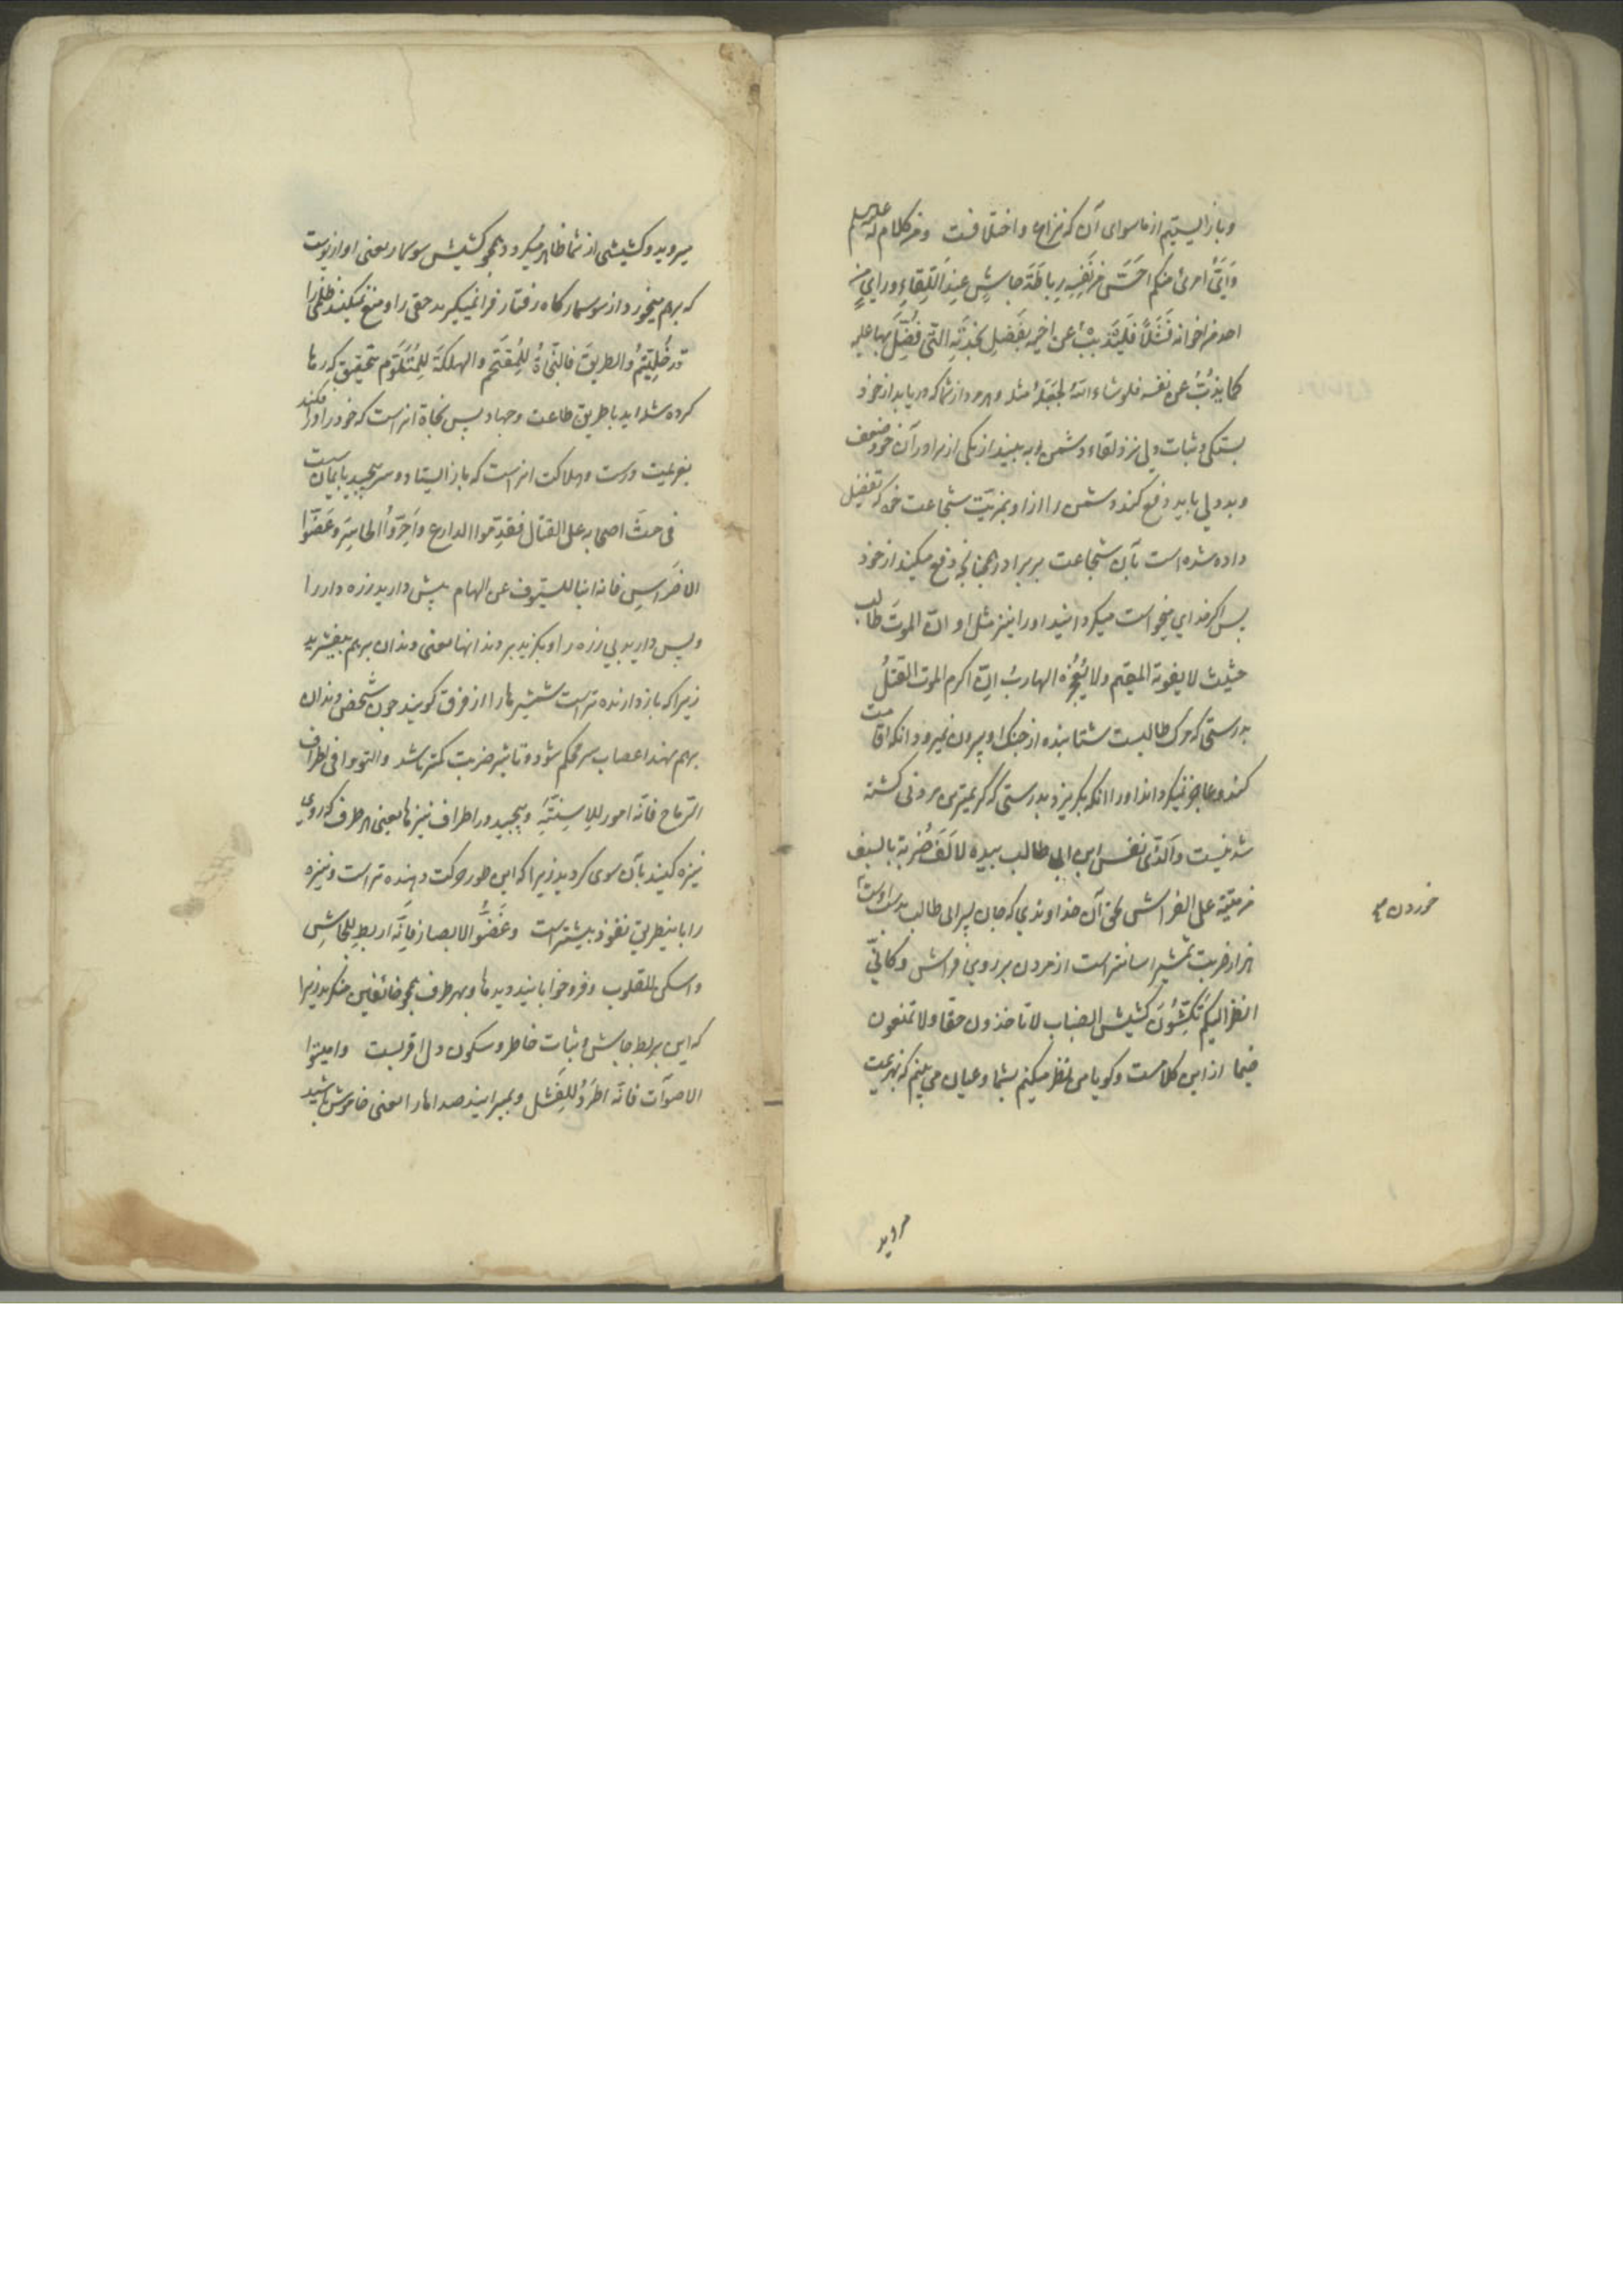 و باز ایستیم از ماسوای آن که نزاع و اختلافست و من کلام له علیه السلم
وَاَیُّ امرئ منکم اَحَسَّ من نَفسِه رباطَةَ جاشٍ عند اللّقاءِ و رای من
احد من اخوانه فَشَلاً فَلیَذُبَّ عن اخیه بفَضلِ نجدَتِه التی فُضِّلَ بها علیه
کما یَذُبُّ عن نفسه فلو شاء الله لجَعَلَهُ مثله و هر مرد از شما که دریابد از خود
بستگی و ثبات دلی نزد لقاء دشمن و به بیند از یکی از برادر آن خود ضعف
و بددلی باید دفع کند دشمن را از او بمزیّت شجاعت خود که تفضیل
داده شده است بآن شجاعت بر برادر همچنانچه دفع میکند از خود
پس اگر خدای میخواست میگردانید او را نیز مثل او انّ الموتَ طالب
حثیث لا یفوته المقیم ولا یُعجِزُه الهاربُ انّ اکرم الموت القتلُ
بدرستی که مرک طالبیست شتابنده از چنک او بیرون نمیرود انکه اقامت
کند و عاجز نمیکرداند او را انکه بکریزد بدرستی که کریمترین مردنی کشته
شدنیست والّذی نفس ابن ابی طالب بیده لاَلفُ ضربة بالسیف
من میتة علی الفراش بحق آن خداوندی که جان پسر ابی طالب بدست اوست
هزار ضربت شمشیر اسانتر است از مردن بر روی فراش و کانّی
انظر الیکم تکِشّون کشیش الضباب لا تاخذون حقا ولا تمنعون
ضیما از این کلامست و کویا من نظر میکنم بشما و عیان می بینم که بهزیمت
خوردن
مروید
میروید و کشیشی از شما ظاهر میکردد همچو کشیش سوسمار یعنی اواز پوست
که بهم میخورد از سوسمار کاه رفتار فرا نمیگیرید حقی را و منع نمیکنید ظلمی را
قد خُلّیتُم والطریقَ فالنّجاةُ للمُقتَحِم والهلکةُ للمُتَلَوِّم بتحقیق که رها
کرده شده اید با طریق طاعت و جهاد پس نجاة انراست که خود را در او افکند
بعزیمت درست و هلاکت انراست که باز ایستاد و سر پیچید
فی حثّ اصحابه علی القتال فقدّموا الدارع واَخِّروُا الحاسِرَ و عَضّوا
الاضراسِ فانه انبا للسیوف عن الهام پیش دارید زره دار را
و پس دارید بی زره را و بکزید بر دندانها یعنی دندان بر هم بیفشرید
زیرا که باز دارنده تر است شمشیرها را از فرق کویند چون شخص دندان
بر هم نهد اعصاب سر محکم شود و تاثیر ضربت کمتر باشد والتووا فی اطراف
الرّماح فانّه امور للاسنّةِ و بپیچید در اطراف نیزها یعنی هر طرف که روی
نیزه کنید بآن سوی کردید زیرا که این طور حرکت دهنده تر است و نیزه
را باینطریق نفوذ بیشتر است و غُضّوا الابصار فانّه اربط للجاشِ
واسکن للقلوب و فرو خوابانید دیدها و بهر طرف همچو خائفین منکرید زیرا
که این بربط جاش و ثبات خاطر و سکون دل اقربست وامیتوا
الاصوات فانّه اطرَدُ للفشل و بمیرانید صداها را یعنی خاموش باشید